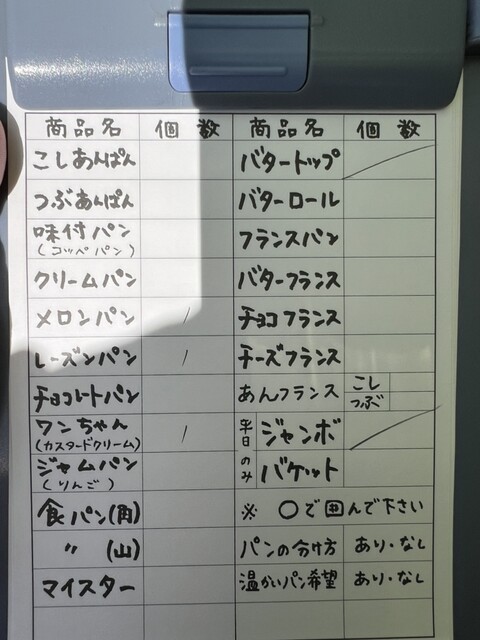 商品名 個数 商品名 個数
こしあんぱん バタートップ
つぶあんぱん バターロール
味付パン フランスパン
(コッペパン)
クリームパン バターフランス
メロンパン / チョコフランス
レーズンパン / チーズフランス
チョコレートパン あんフランス こし
つぶ
ワンちゃん / 平日 ジャンボ
(カスタードクリーム)
ジャムパン のみ バケット
(りんご)
食パン(角) ※ ○で囲んで下さい
〃 (山) パンの分け方 あり・なし
マイスター 温かいパン希望 あり・なし